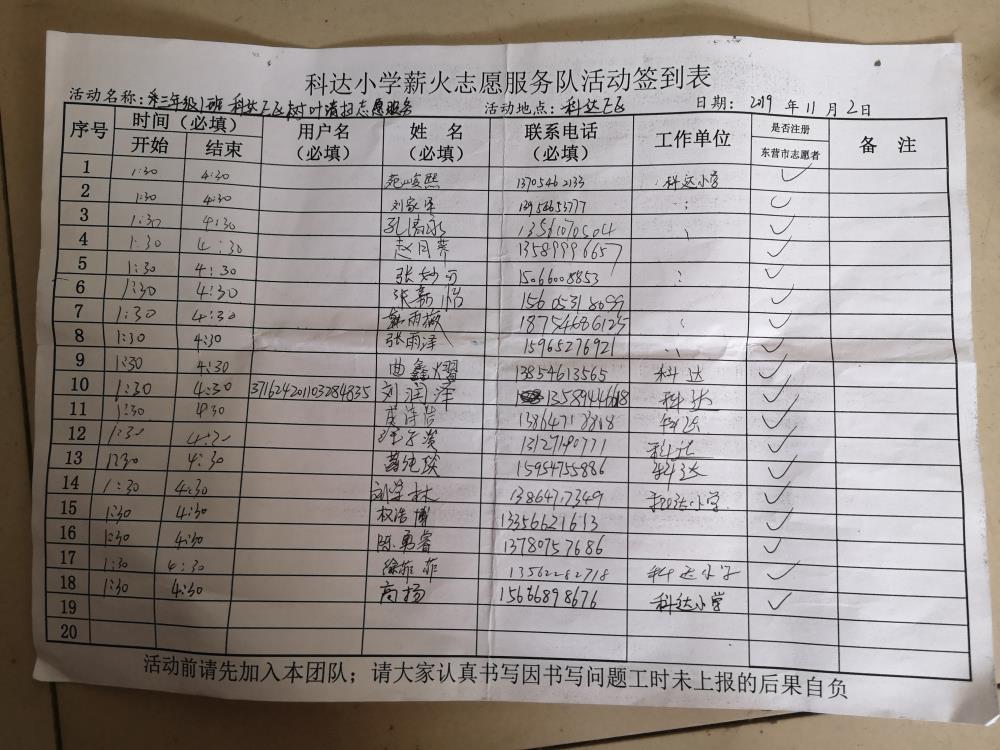 科达小学薪火志愿服务队活动签到表
活动名称：三年级1班 科达 树叶清扫志愿服务 活动地点：科达 日期：2019 年 11 月 2 日
序号 时间（必填） 用户名（必填） 姓 名（必填） 联系电话（必填） 工作单位 是否注册东营市志愿者 备 注
开始 结束
1 1:30 4:30 苑峻熙 13705462133 科达小学 ✓
2 1:30 4:30 刘家 ✓
3 1:30 4:30 孔 13561070504 ✓
4 1:30 4:30 赵月荠 13589996657 ✓
5 1:30 4:30 张妙可 15066008853 ✓
6 1:30 4:30 张嘉怡 15605318099 ✓
7 1:30 4:30 雨薇 18754686125 ✓
8 1:30 4:30 张雨泽 15965276921 ✓
9 1:30 4:30 曲鑫熠 13854613565 科达 ✓
10 1:30 4:30 371624201103284835 刘润泽 13589444618 科达 ✓
11 1:30 4:30 科达 ✓
12 1:30 4:30 科达 ✓
13 1:30 4:30 葛纯琰 15954755886 科达 ✓
14 1:30 4:30 刘学林 13864717349 科达小学 ✓
15 1:30 4:30 权浩博 13356621613 ✓
16 1:30 4:30 陈勇睿 13780757686 ✓
17 1:30 4:30 徐菲菲 13562282718 科达小学 ✓
18 1:30 4:30 高扬 15666898676 科达小学 ✓
19
20
活动前请先加入本团队；请大家认真书写因书写问题工时未上报的后果自负